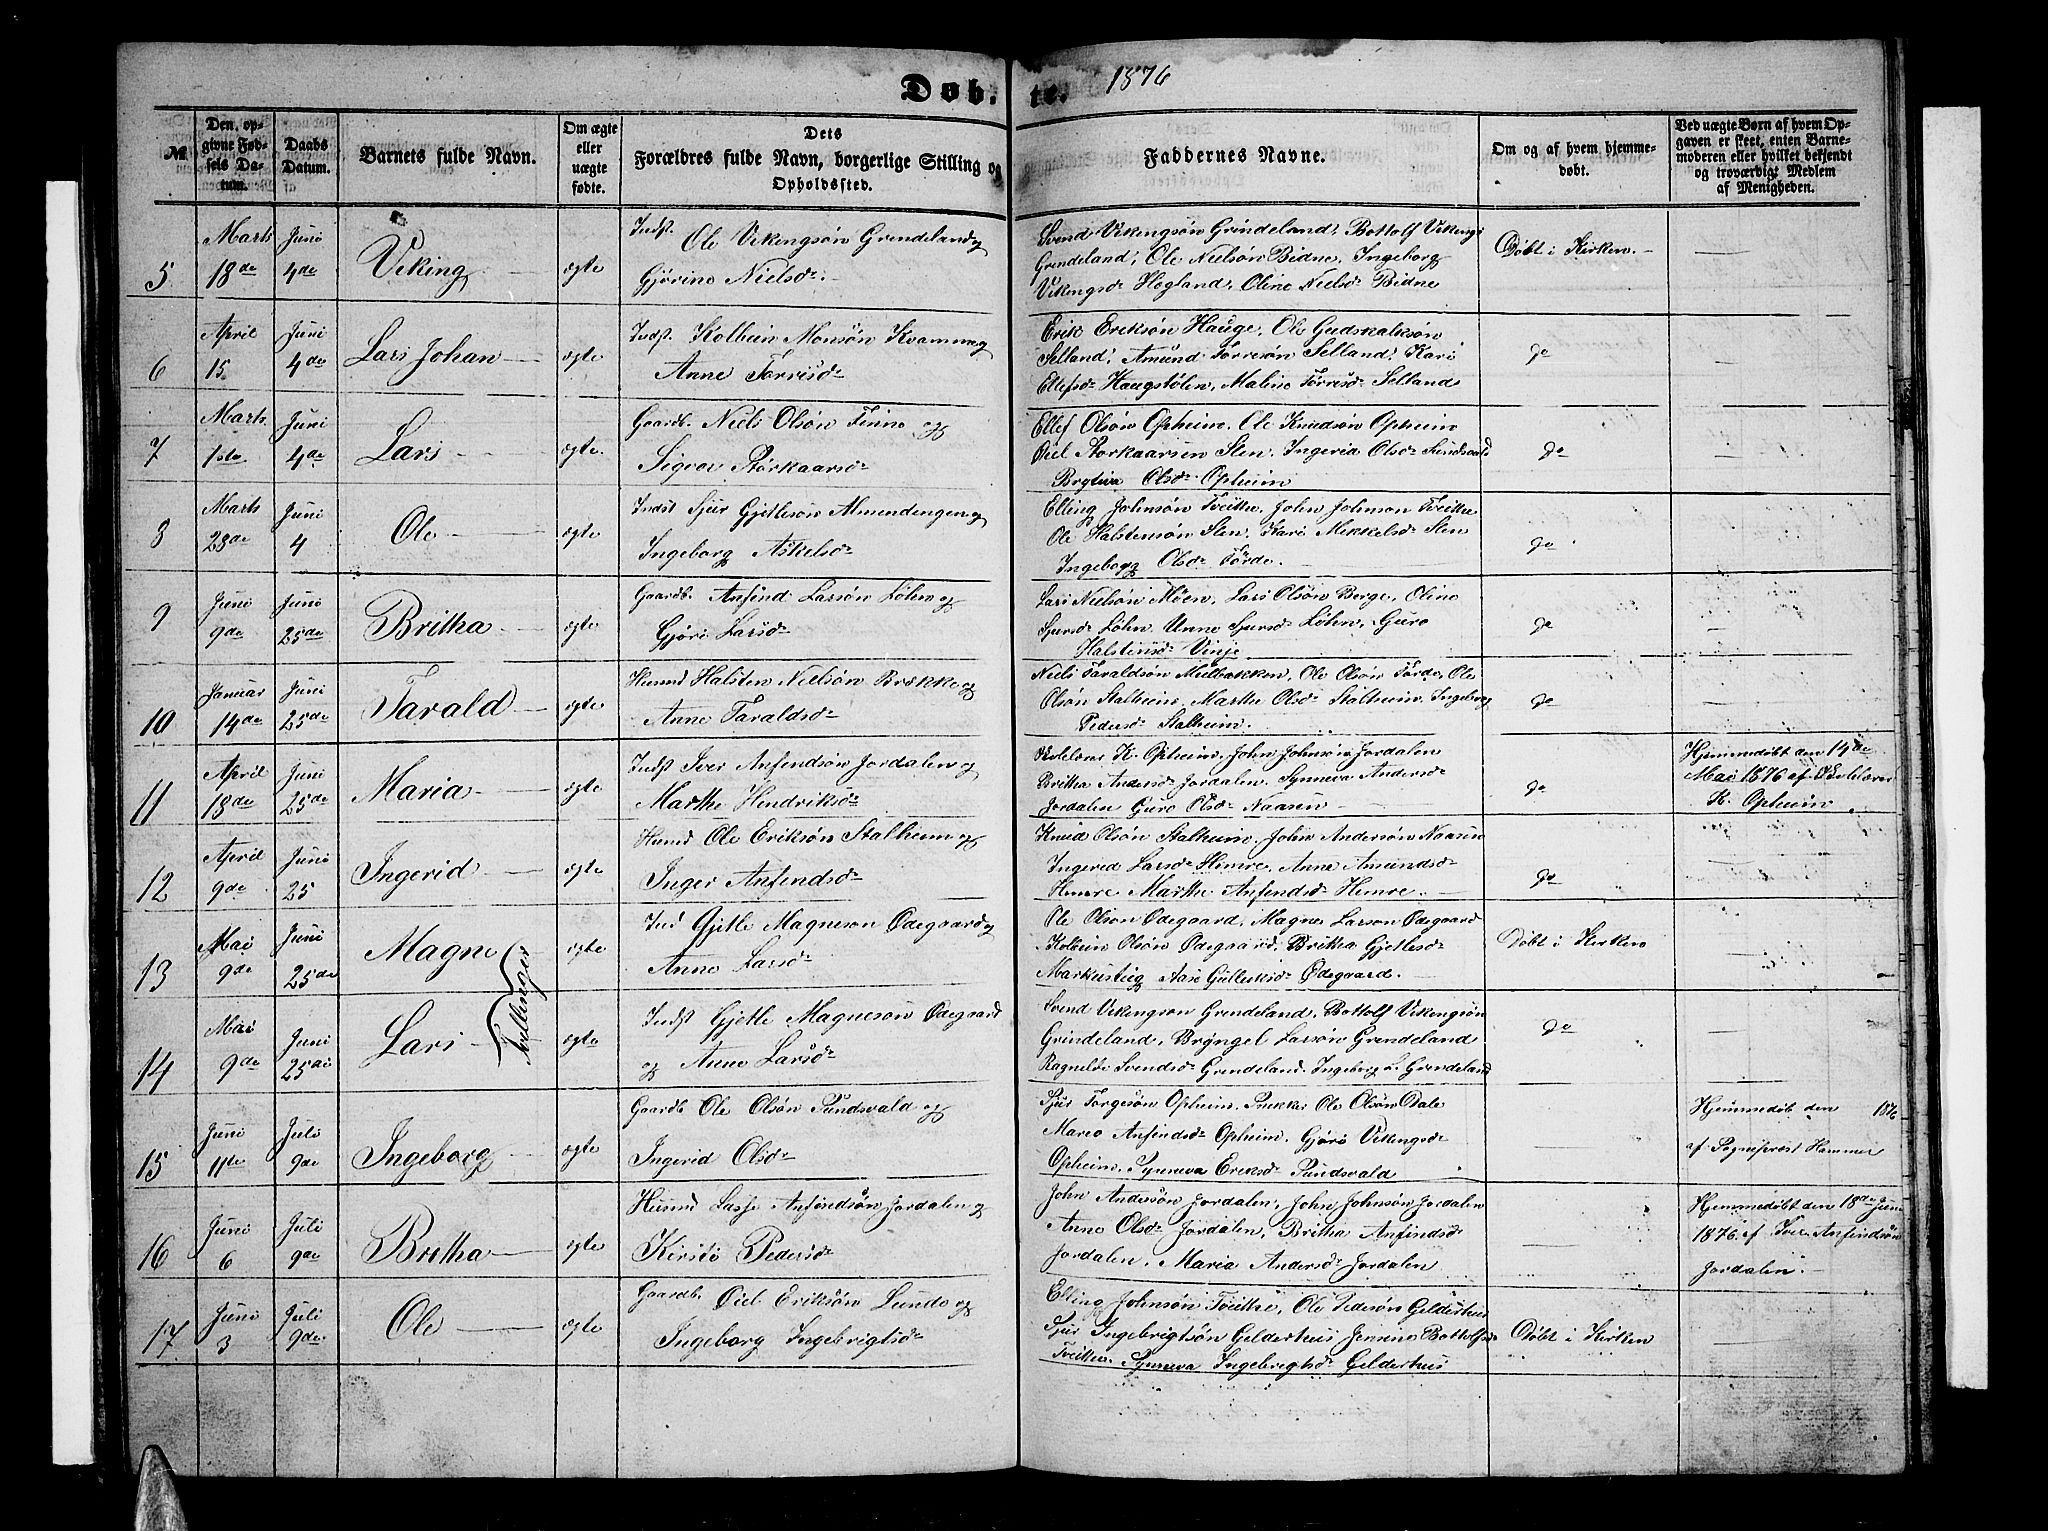 Døbte. 1876
№
Den opgivne Fødsels Datum.
Daabs Datum.
Barnets fulde Navn.
Om ægte eller uægte fødte.
Dets Forældres fulde Navn, borgerlige Stilling og Opholdssted.
Faddernes Navne.
Om og af hvem hjemmedøbt.
Ved uægte Børn af hvem Opgaven er skeet, enten Barnemoderen eller hvilket bekjendt og troværdigt Medlem af Menigheden.
5 Marts 18de Juni 4de Viking ægte
Indst. Ole Vikingsøn Grindeland og
Gjørine Nielsdr.
Svend Vikingsøn Grindeland, Bottolf Vikings
Grendeland, Ole Nielsøn Bidne, Ingeborg
Vikingsdr Høgland, Oline Nielsdr Bidne
Døbt i Kirken. —
6 April 15. Juni 4de Lars Johan ægte
Indst. Kolbein Monsøn Kvamme og
Anne Torrisdr
Erik Eriksøn Hauge, Ole Gudskalksøn
Selland, Amund Torresøn Selland, Kari
Ellefsdr Haugstølen, Maline Torresdr Selland
do
7 Marts 1ste Juni 4de Lars ægte.
Gaardb. Niels Olsøn Finne og
Sigvor Storkaarsdr
Ellef Olsøn Opheim, Ole Knudsøn Opheim
Øiel Storkaarsen Slen, Ingeria Olsdr
Brytiva Olsdr Opheim
do
8 Marts 23de Juni 4 Ole ægte
Indst Sjur Gjetlesøn Almendengen og
Ingeborg Askelsdr
Elling Johnsøn Tveithe, John Johnson Tveithe
Ole Halstensøn Slen, Kari Mikkelsdr Slen
Ingeborg Olsdr Førde.
do
9 Juni 9de Juni 25de Britha ægte
Gaardb. Anfind Larsøn Løhn og
Gjøri Larsdr
Lars Nielsøn Møen, Lars Olsøn Berge, Oline
Sjursdr Løhn, Unne Sjursdr Løhn, Guro
Halstensdr Vinje
do
10 Januar 14de Juni 25de Tarald ægte
Husmd Halsten Nielsøn Brekke og
Anne Taraldsdr
Niels Taraldsøn Melbakken, Ole Olsøn Førde, Ole
Olsøn Stalheim, Marthe Olsdr Stalheim, Ingeborg
Pedersdr Stalheim.
do
11 April 18de Juni 25de Maria ægte
Indst Iver Anfindsøn Jordalen og
Marthe Hendriksdr
Skolelærer K. Opheim, John Johnsøn Jordalen
Britha Andersdr Jordalen, Synneva Andersdr
Jordalen Guro Olsdr Naasen
do
Hjemmedøbt den 14de
Mai 1876 af Skolelærer
K. Opheim
12 April 9de Juni 25 Ingerid ægte
Husmd Ole Eriksøn Stalheim og
Inger Anfindsdr
Knud Olsøn Stalheim, John Andersøn Naasen
Ingerid Larsdr Hemre, Anne Amundsdr
Hemre Marthe Anfindsdr Hemre.
do
13 Mai 9de Juni 25de Magne ægte
Ind Gjetle Magneson Ødegaard og
Anne Larsdr
Ole Olson Ødegaard, Magne Larson Ødegaard
Kolbein Olsøn Ødegaard, Britha Gjetlesdr
Markusteig Aase Gulleiksdr Ødegaard.
Døbt i Kirken
Tvillinger
14 Mai 9de Juni 25de Lars ægte
Indst Gjetle Magnesøn Ødegaard
og Anne Larsdr
Svend Vikingson Grendeland, Bottolf Vikingsøn
Grindeland, Bryngel Larsøn Grendeland
Ragnilde Svendsdr Grendeland, Ingeborg L. Grendeland
do
15 Juni 11te Juli 9de Ingeborg ægte
Gaardb Ole Olsøn Sundsvald og
Ingerid Olsdr
Sjur Torgesøn Opheim, Snekker Ole Olsøn Dale
Mareo Anfindsdr Opheim, Gjøri Vikingsdr
Opheim, Synneva Eriksdr Sundsvald
Hjemmedøbt den 1876
af Sognepræst Hammer
16 Juni 6 Juli 9de Britha ægte
Husmd Lasse Anfindsøn Jordalen og
Kirsti Pedersdr
John Andersøn Jordalen, John Johnsøn Jordalen
Anne Olsdr Jordalen, Britha Anfindsdr
Jordalen, Maria Andersdr Jordalen
Hjemmedøbt den 18de Juni
1876 af Iver Anfindsøn
Jordalen.
17 Juni 3 Juli 9de Ole ægte
Gaardb. Øiel Eriksøn Lunde og
Ingeborg Ingebrigtsdr
Elling Johnsøn Tveithe, Ole Pedersøn Gelderhus
Sjur Ingebrigtsøn Gelderhus Jensine Bottolfsdr
Tveithe. Synneva Ingebrigtsdr Gelderhus
Døbt i Kirken